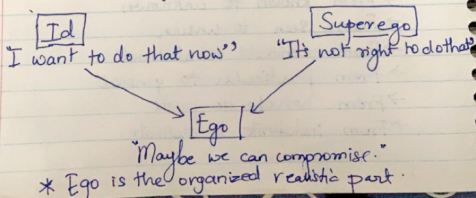 Id
Superego
"I want to do that now"
"It's not right to do that"
Ego
"Maybe we can compromise."
* Ego is the organized realistic part.